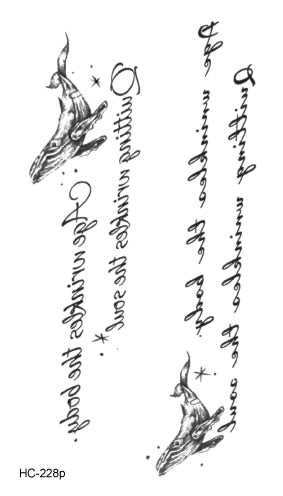 Age wrinkles the body.
Quitting wrinkles the soul
Age wrinkles the body.
Quitting wrinkles the soul
HC-228p